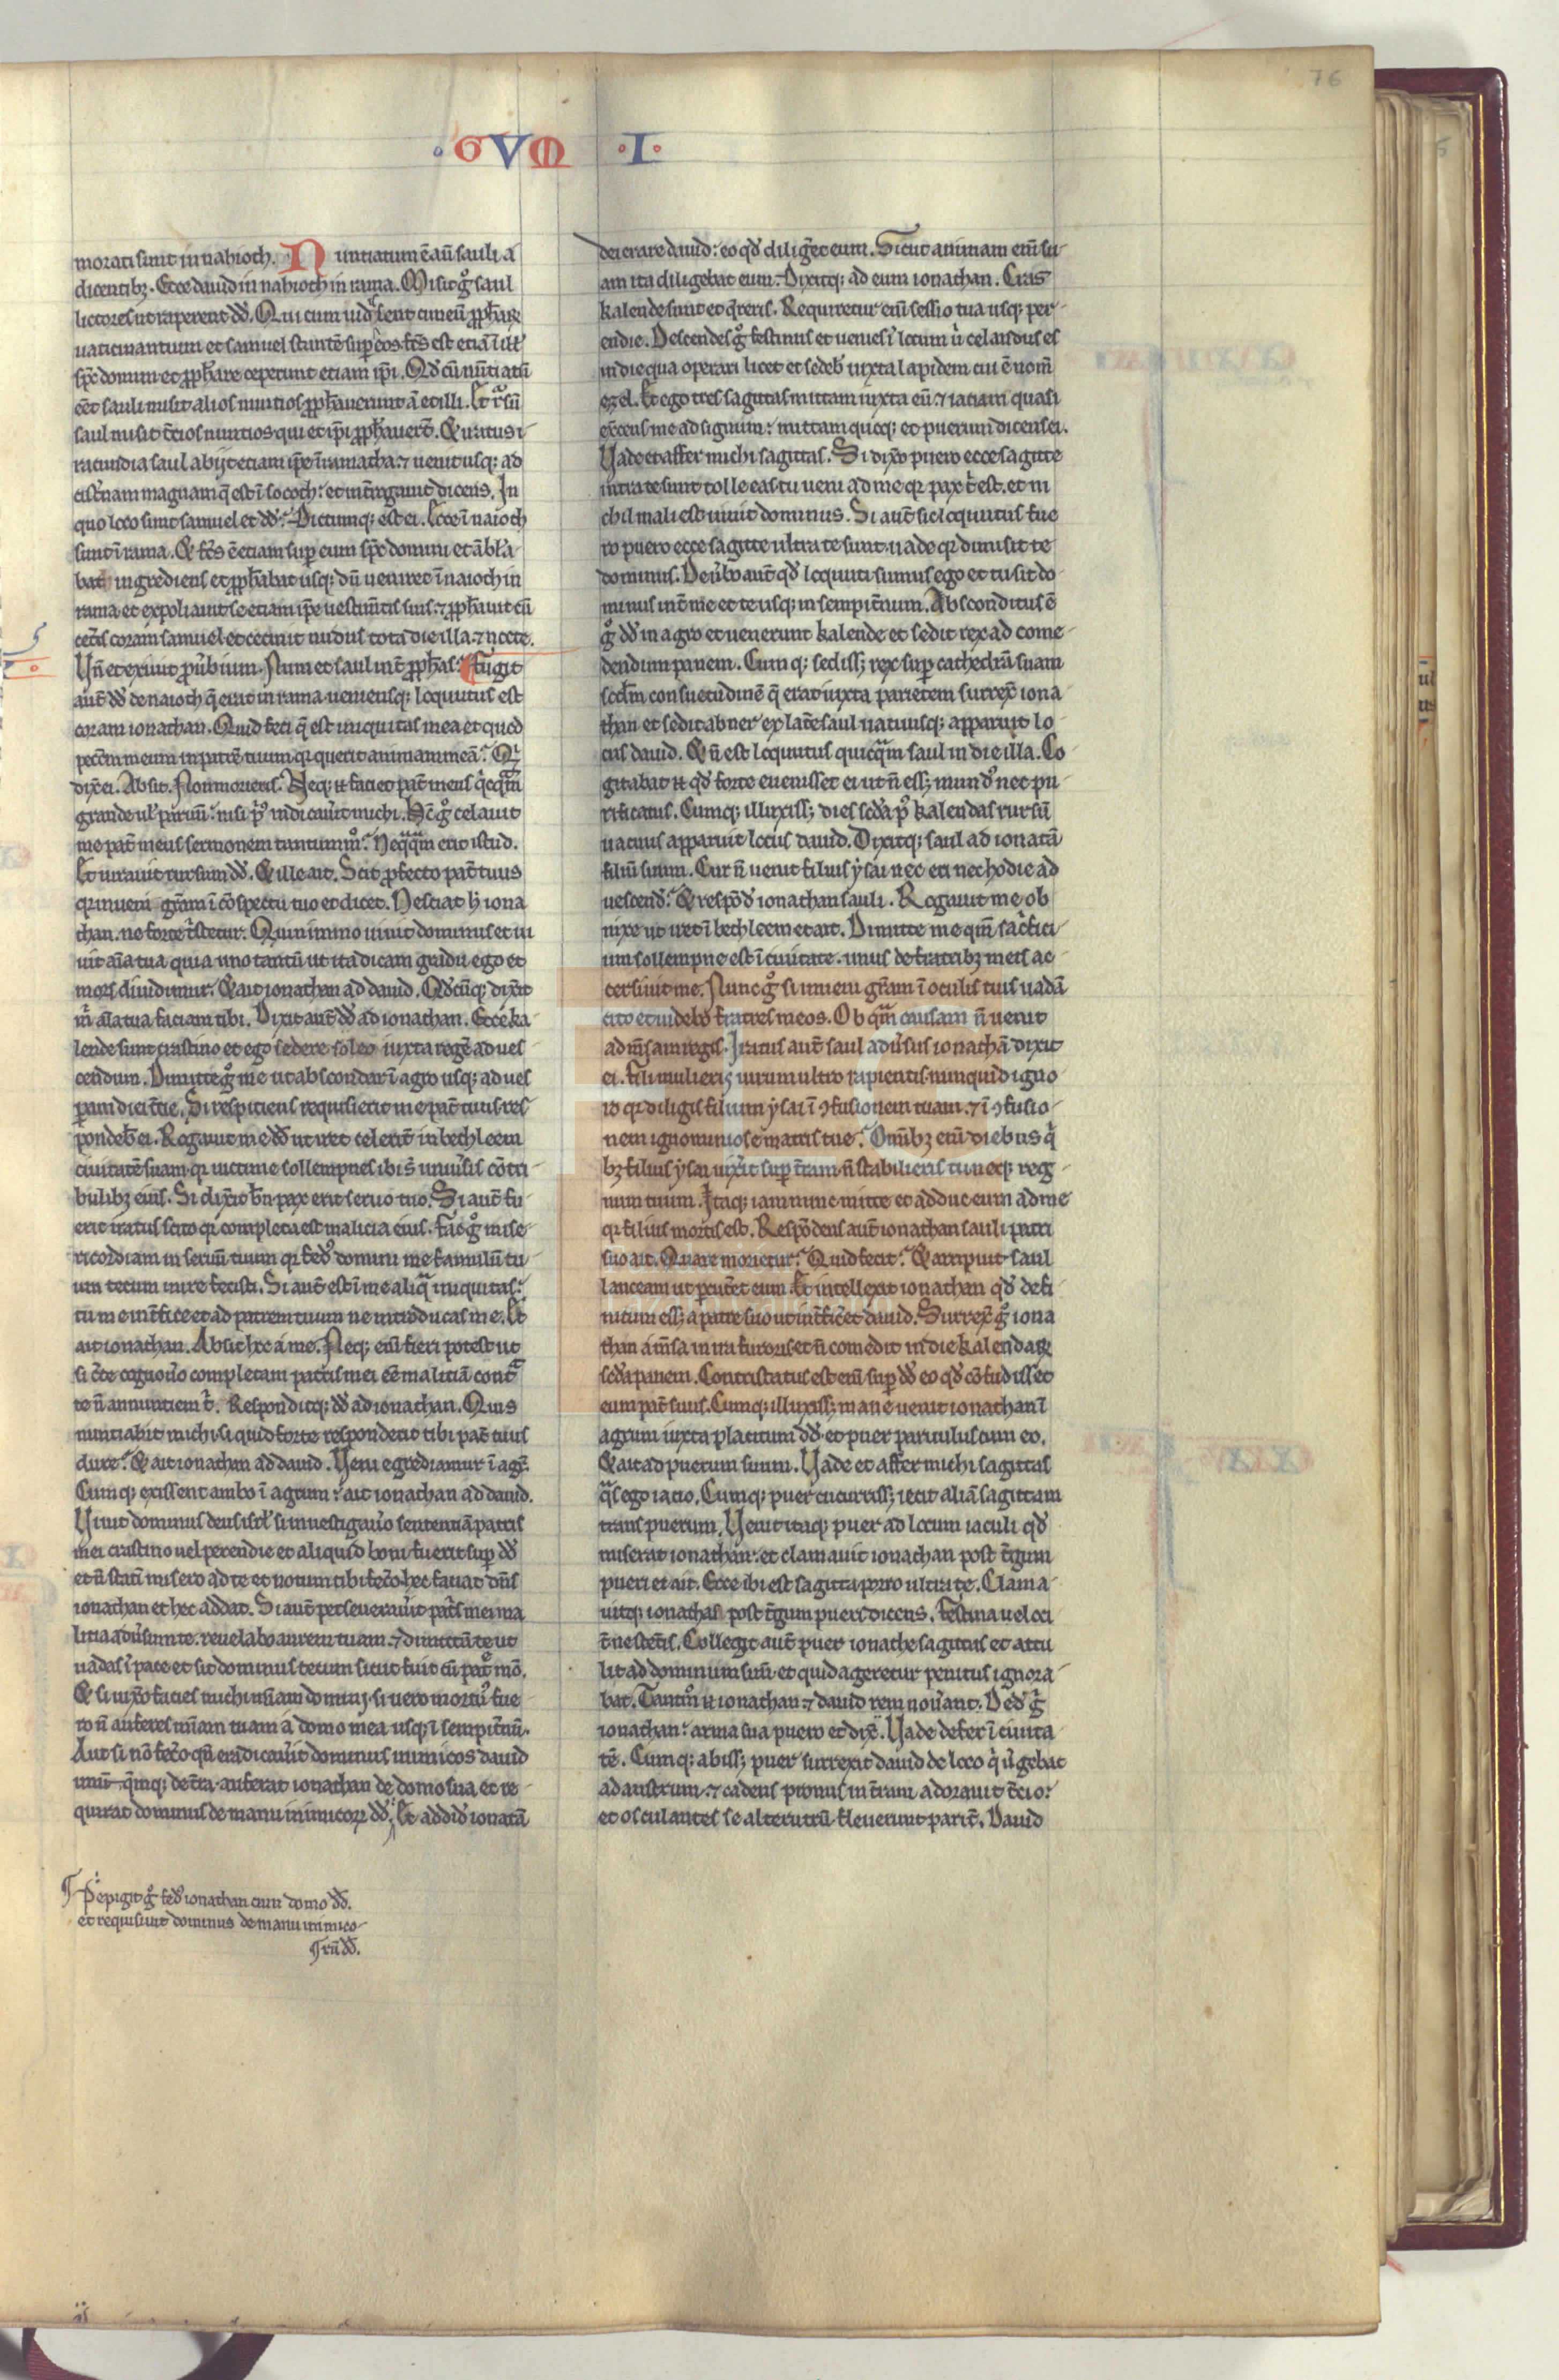 76
·GVM ·I·
morati sunt in nabioth. Nuntiatum ē aū sauli a
dicentibȝ. Ecce dauid in nabioth in rama. Misit gͦ saul
lictores ut raperent dd̄. Qui cum uidissent cuneū ꝓph̄aꝝ
uaticinantium et samuel stantē sup̄ eos. fcs̄ est etiā ī ill'
sp̄c domini et ꝓph̄are ceperunt etiam ip̄i. Qd̄ cū nūtiatū
eēt sauli misit alios nuntios ꝓph̄auerunt ā et illi. Et rͬsū
saul misit t̄cios nuntios qui et ip̄i ꝓph̄auerūt. Et iratus i
racundia saul abijt etiam ip̄e ī ramatha: ⁊ uenit usqꝫ ad
cist̄nam magnam q̄ est ī socoth: et int̄rogauit dicens. In
quo loco sunt samuel et dd̄? Dictumqꝫ est ei. Ecce ī naioth
sunt ī rama. Et fcs̄ ē etiam super eum sp̄c domini et ābl'a
bat ingrediens et ꝓph̄abat usqꝫ dū ueniret ī naioth in
rama et expoliauit se etiam ip̄e uestim̄tis suis. ⁊ ꝓph̄auit cū
cet̄is coram samuel et cecinit nudus tota die illa. ⁊ nocte.
Vn̄ et exiuit ꝓu̍bium. Num et saul int̄ ꝓph̄as? Fugit
aut̄ dd̄ de naioth q̄ erat in rama ueniensqꝫ loquutus est
coram ionathan. Quid feci q̄ est iniquitas mea et quod
pecc̄m meum in patrē tuum qꝛ querit animam meā? Qꝛ
dix̄ ei. Absit. Non morieris. Neqꝫ n̄ faciet pat̄ meus qͥcqͣm
grande ul' paruū: nisi pͥꝰ indicau̍it michi. Hc̄ gͦ celauit
me pat̄ meus sermonem tantummͦ? Neqͣqͣm erit istud.
Et iurauit rursum dd̄. Et ille ait. Scit ꝓfecto pat̄ tuus
qꝛ inueni grām ī cōspectu tuo et dicet. Nesciat h̄ iona
than. ne forte tͥstetur. Quin immo uiuit dominus et ui
uit aīa tua quia uno tantū ut ita dicam gradu ego et
mors diuidimur. Et ait ionathan ad dauid. Qd̄cūqꝫ dix̄it
m̍ aīa tua faciam tibi. Dixit aut̄ dd̄ ad ionathan. Ecce ka
lende sunt crastino et ego sedere soleo iuxta regē ad ues
cendum. Dimitte gͦ me ut abscondar ī agro usqꝫ ad ues
peram diei t̄cie. Si respiciens requisierit me pat̄ tuus. res
pondeb̄ ei. Rogauit me dd̄ ut iret celerit̄ in bethleem
ciuitatē suam. qꝛ uictime sollempnes ibi s̄ uniu̍sis cōtri
bulibȝ eius. Si dix̄it bn̄. pax erit seruo tuo. Si aut̄ fu
erit iratus scito qꝛ completa est malicia eius. Fac gͦ mise
ricordiam in seruū tuum qꝛ fedꝰ domini me famulū tu
um tecum inire fecisti. Si aut̄ est ī me aliqͣ iniquitas:
tu me int̄fice et ad patrem tuum ne introducas me. Et
ait ionathan. Absit hoc a me. Neqꝫ eni fieri potest ut
si c̄te cognou̍o completam patris mei eē maliciā contͣ
te n̄ annuntiem tͥ. Responditqꝫ dd̄ ad ionathan. Quis
nuntiabit michi si quid forte responderit tibi pat̄ tuus
dure? Et ait ionathan ad dauid. Veni egrediamur ī agͬ.
Cumqꝫ exissent ambo ī agrum: ait ionathan ad dauid.
Viuit dominus deus isrl' si inuestigau̍o sententiā patris
mei crastino uel perendie et aliquid boni fuerit sup̄ dd̄
et n̄ statī misero ad te et notum tibi fec̍o. hec faciat dn̄s
ionathan et hec addat. Si aut̄ perseuerau̍it pat̍s mei ma
litia adu̍sum te. reuelabo aurem tuam. ⁊ dimittā te ut
uadas ī pace et sit dominus tecum sicut fuit cū patͤ mō.
Et si uix̍o facies michi mīam domini. si uero mortuꝰ fue
ro n̄ auferes mīam tuam a domo mea usqꝫ ī sempit̄nū.
Aut si nō fec̍o qn̄ eradicau̍it dominus inimicos dauid
unū qͫqꝫ de t̄ra. auferat ionathan de domo sua et re
quirat dominus de manu inimicoꝝ dd̄. Et addidꝰ ionatā
¶ Pepigit gͦ fedꝰ ionathan cum domo dd̄.
et requisiuit dominus de manu inimico
¶rū dd̄.
deierare dauid: eo qd̄ diligeret eum. Sicut animam enī su
am ita diligebat eum. Dixitqꝫ ad eum ionathan. Cras
kalende sunt et qͬeris. Requiretur enī sessio tua usqꝫ per
endie. Descendes gͦ festinus et uenies ī locum u̍ celandus es
in die qua operari licet et sedeb̄ iuxta lapidem cui ē nom̄
ezel. Et ego tres sagittas mittam iuxta eū ⁊ iaciam quasi
ex̍cens me ad signum: mittam quoqꝫ et puerum dicens ei.
Vade et affer michi sagittas. Si dix̍o puero ecce sagitte
intra te sunt tolle eas. tu ueni ad me qꝛ pax tͥ est. et ni
chil mali est uiuit dominus. Si aut̄ sic loquutus fue
ro puero ecce sagitte ultra te sunt. uade qꝛ dimisit te
dominus. De u̍bo aut̄ qd̄ loquuti sumus ego et tu sit do
minus int̄ me et te usqꝫ in sempit̄num. Absconditus ē
gͦ dd̄ in agro et uenerunt kalende et sedit rex ad come
dendum panem. Cumqꝫ sedissꝫ rex sup̄ cathedrā suam
scdm̄ consuetudinē q̄ erat iuxta parietem surrex̄ iona
than et sedit abner ex lat̄e saul uacuusqꝫ apparuit lo
cus dauid. Et n̄ est loquutus quicqͣm saul in die illa. Co
gitabat n̄ qd̄ forte euenisset ei ut n̄ essꝫ mundꝰ nec pu
rificatus. Cumqꝫ illuxissꝫ dies scd̄a pꝰ kalendas rursū
uacuus apparuit locus dauid. Dixitqꝫ saul ad ionatā
filiū suum. Cur n̄ uenit filius ysai nec eri nec hodie ad
uescendꝰ? Et respōdꝰ ionathan sauli. Rogauit me ob
nixe ut iret ī bethleem et ait. Dimitte me qm̄ sac̍fici
um sollempne est ī ciuitate. unus de fratribȝ meis ac
cersiuit me. Nunc gͦ si inueni grām ī oculis tuis uadā
cito et uidebo fratres meos. Ob qͣm causam n̄ uenit
ad m̄sam regis. Iratus aut̄ saul adu̍sus ionathā dixit
ei. Fili mulieris uirum ultro rapientis. nunquid igno
ro qꝛ diligis filium ysai ī ꝯfusionem tuam. ⁊ ī ꝯfusio
nem ignominiose matris tue? Omībȝ enī diebus qͥ
bȝ filius ysai uix̍it sup̄ t̄ram. n̄ stabilieris tu neqꝫ reg
num tuum. Itaqꝫ iam nunc mitte et adduc eum ad me
qꝛ filius mortis est. Respōdens aut̄ ionathan sauli patri
suo ait. Quare morietur? Quid fecit? Et arripuit saul
lanceam ut percut̍et eum. Et intellexit ionathan qd̄ defi
nitum essꝫ a patre suo ut int̄fic̍et dauid. Surrex̄ gͦ iona
than a m̄sa in ira furoris et n̄ comedit in die kalendaꝝ
scd̄a panem. Contristatus est enī sup̄ dd̄ eo qd̄ cōfudisset
eum pat̄ suus. Cumqꝫ illuxissꝫ mane uenit ionathan ī
agrum iuxta placitum dd̄. et puer paruulus cum eo.
Et ait ad puerum suum. Vade et affer michi sagittas
qͣs ego iacio. Cumqꝫ puer cucurrissꝫ iecit aliā sagittam
trans puerum. Venit itaqꝫ puer ad locum iaculi qd̄
miserat ionathan: et clamauit ionathan post t̄gum
pueri et ait. Ecce ibi est sagitta porro ultra te. Clama
uitqꝫ ionathas post t̄gum pueri dicens. Festina ueloci
t̄ ne stet̍is. Collegit aut̄ puer ionathe sagittas et attu
lit ad dominum suū. et quid ageretur penitus ignora
bat. Tantm̄ n̄ ionathan ⁊ dauid rem nou̍ant. Dedꝰ gͦ
ionathan: arma sua puero et dix̄. Vade defer ī ciuita
tē. Cumqꝫ abissꝫ puer surrexit dauid de loco qͥ u̍gebat
ad austrum. ⁊ cadens pronus in t̄ram adorauit t̄cio:
et osculantes se alterutrū fleuerunt parit̄. Dauid